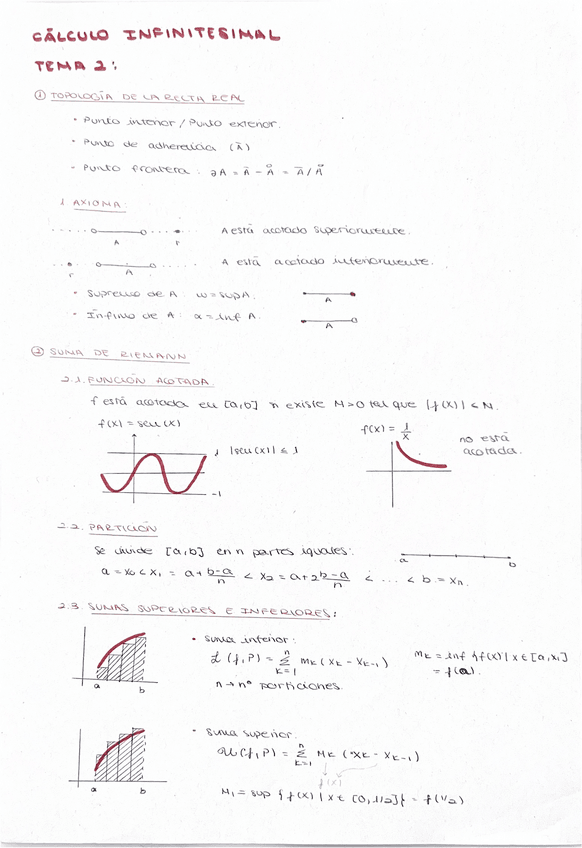 CÁLCULO INFINITESIMAL
TEMA 2:
① TOPOLOGÍA DE LA RECTA REAL
· Punto interior / Punto exterior.
· Punto de adherencia (Ā)
- Punto frontera: ∂A = Ā - Å = Ā / Å
1 AXIOMA:
A r A está acotado superiormente.
r A A está acotado inferiormente.
· Supremo de A: w = sup A. A
· Ínfimo de A: α = inf A. A
② SUMA DE RIEMANN
2.1. FUNCIÓN ACOTADA.
f está acotada en [a,b] si existe M>0 tal que |f(x)| ≤ M.
f(x) = sen(x) f(x) = 1/x
1 |sen(x)| ≤ 1 no está
acotada.
-1
2.2. PARTICIÓN
Se divide [a,b] en n partes iguales:
a b
a = x₀ < x₁ = a + b-a/n < x₂ = a + 2 b-a/n < ... < b = xn.
2.3. SUMAS SUPERIORES E INFERIORES:
· Suma inferior:
L(f,P) = Σ k=1 n mk (xk - xk-1) mk = inf {f(x) | x ∈ [a,x₁]
= f(a).
n → nº particiones.
a b
· Suma superior:
U(f,P) = Σ k=1 n Mk (xk - xk-1)
f(x)
a b
M₁ = sup {f(x) | x ∈ [0,1/2]} = f(1/2)